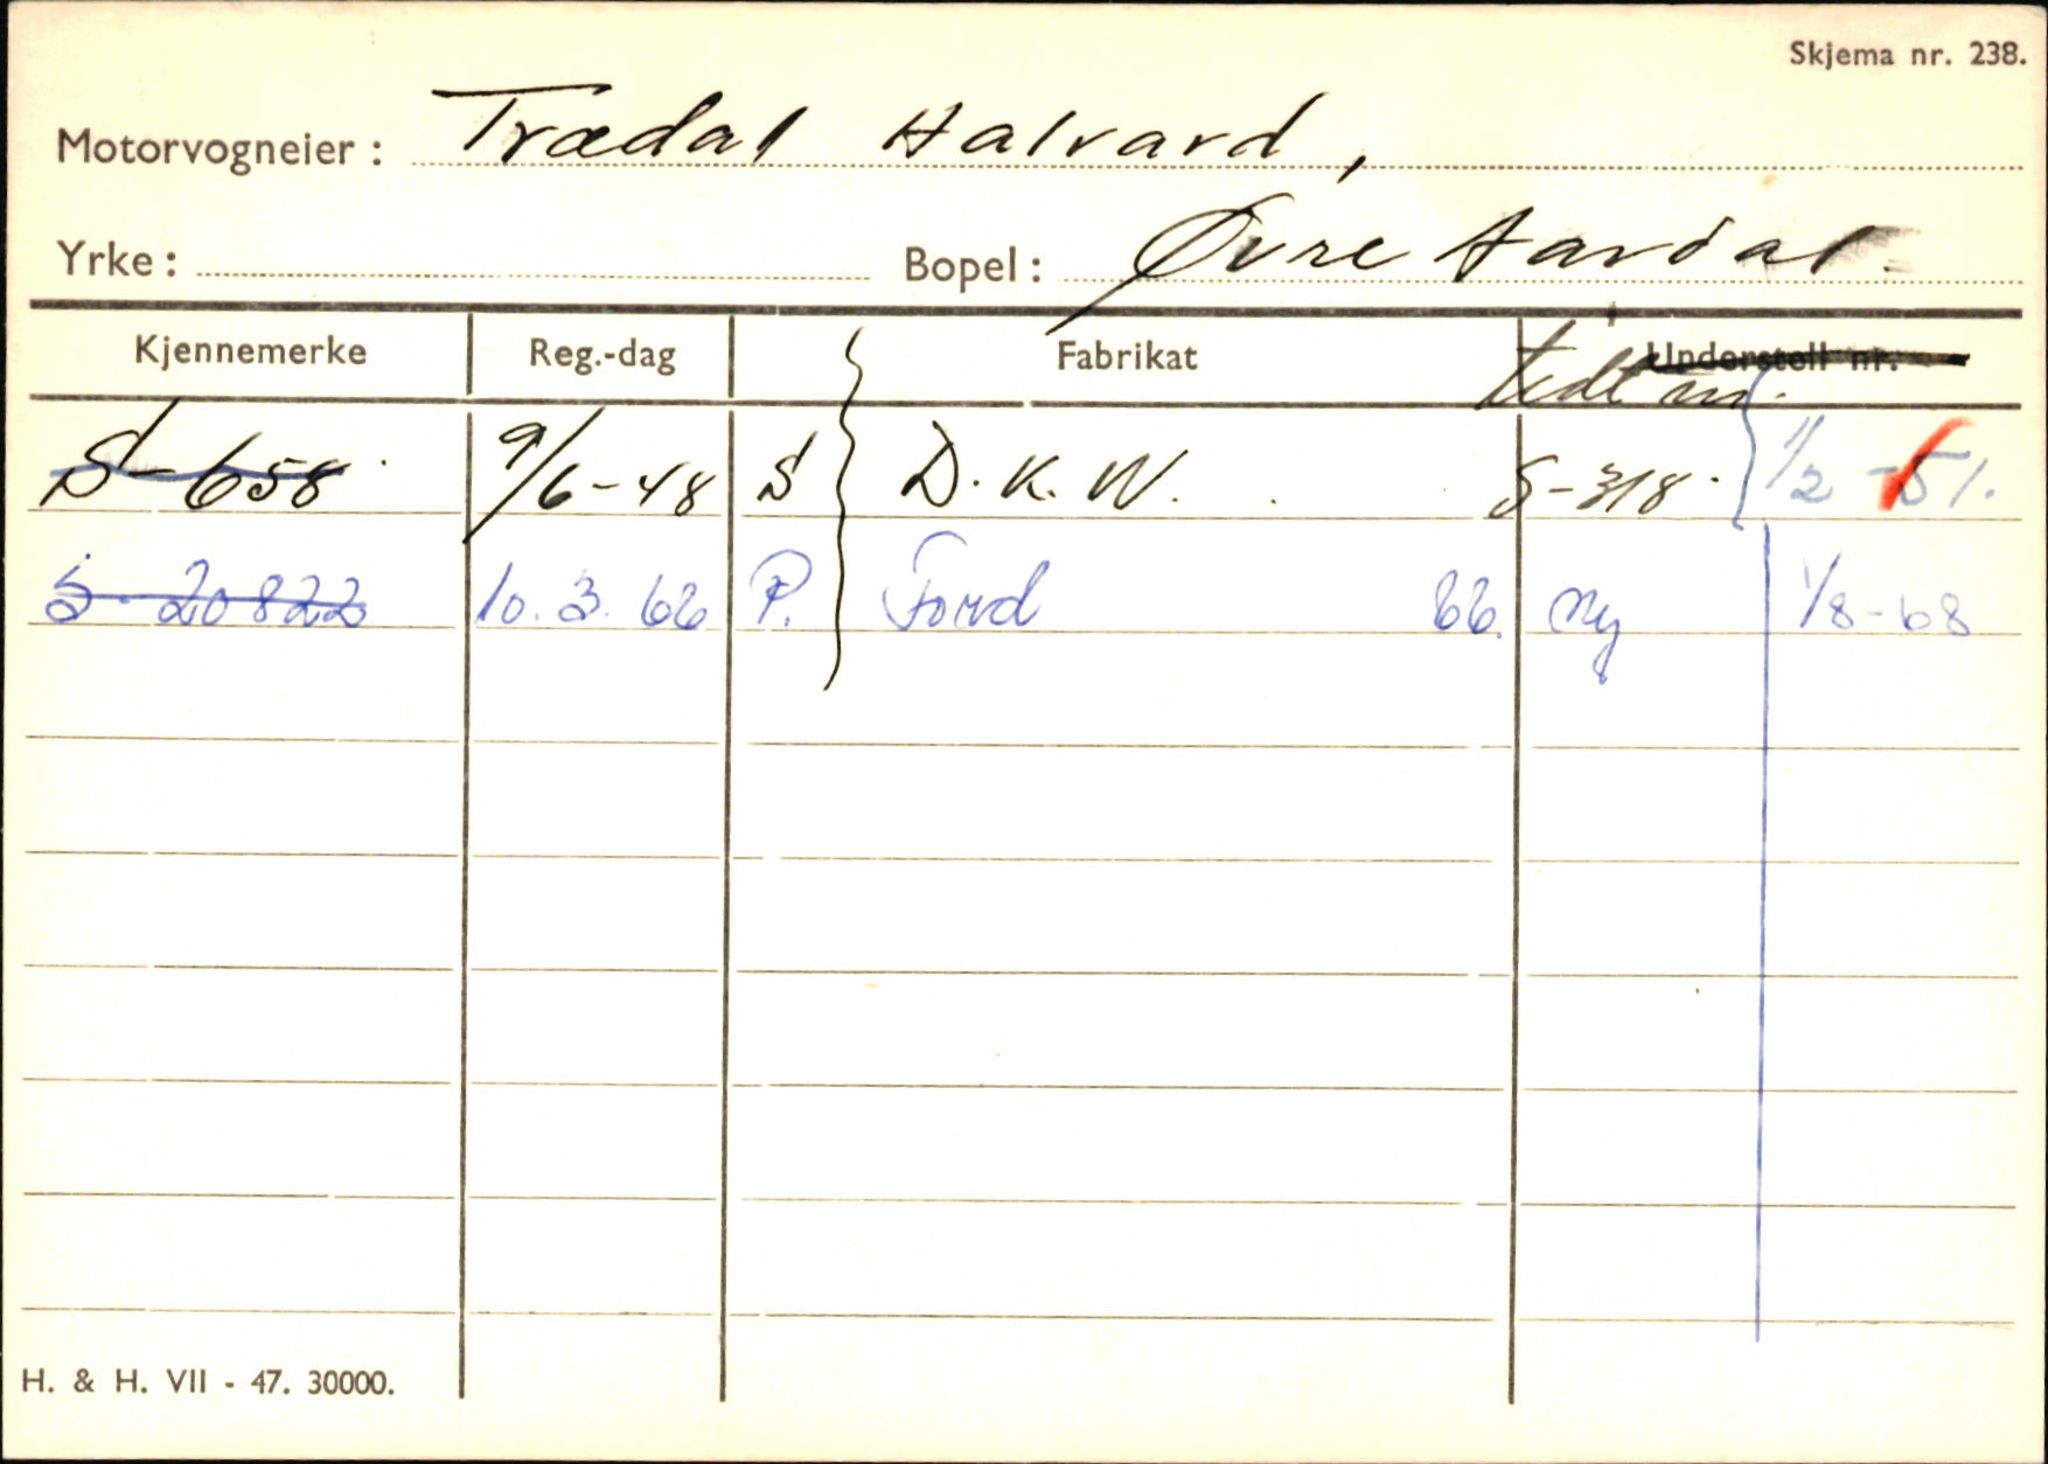 Skjema nr. 238.
Motorvogneier: Trædal Halvard,
Yrke: Bopel: Øvre Aardal.
Kjennemerke Reg.-dag Fabrikat Understell nr.
S-658 9/6-48 S D.K.W. S-318 1/2-51.
S-20822 10.3.66 P. Ford 66. ny 1/8-68
H. & H. VII - 47. 30000.